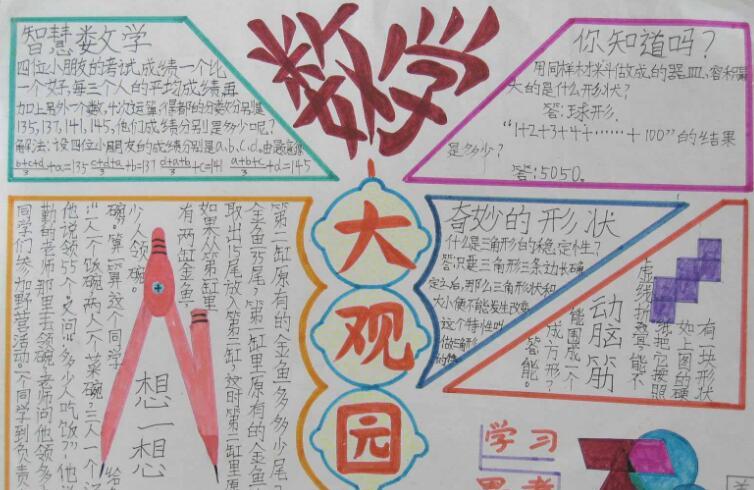 数学
大观园
智慧数学
四位小朋友的考试成绩一个比
一个好,每三个人的平均成绩再
加上另外一个数,十次运算,得都的分数分别是
135,137,141,145,他们成绩分别是多少呢?
解法:设四位小朋友的成绩分别是a,b,c,d,由题意得
b+c+d/3+a=135 c+d+a/3+b=137 d+a+b/3+c=141 a+b+c/3+d=145
你知道吗?
用同样材料做成的器皿,容积最
大的是什么形状?
答:球形.
“1+2+3+4+……+100”的结果
是多少?
答:5050.
奇妙的形状
什么是三角形的稳定性?
答:只要三角形三条边长确
定之后,那么三角形状和
大小便不能发生改变
这个特性叫
做三角形
动脑筋
有一块形状
如上图的硬
纸把它按照
虚线折叠,能不
能围成一个
正方形?
答:能。
第二缸原有的金鱼多多少尾
金鱼35尾?第一缸里原有的金鱼
取出15尾放入第二缸,这时第二缸里原
如果从第一缸里
有两缸金鱼,
想一想
少人领碗。
碗。算一算这个同学
“一人一个饭碗,两人一个菜碗,三人一个汤
他说领55个。又问“多少人吃饭”他说
勤的老师那里去领碗。老师问他领多
同学们参加野营活动。一个同学到负责
学习
思考